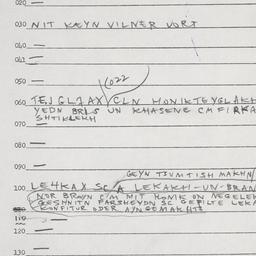 020
030 NIT KEYN VILNER VORT
040
041
050
1022
060 TEJGL7AX / CLN HONIKTEYGLAKH
YEDN BRIS UN KHASENE CMFIRKA
SHTIKLEKH
070
080
090
GEYN TSUMTISH MAKHN
100 LE4KAX SC A LEKAKH-UN-BRAN
NOR BROYN C'M MIT HONIK ON NEGELEK
GESHNITN FARSHEYDN SC GEFILTE LEKA
KONFITUR ODER AYNGEMAKHTS
110
120
130